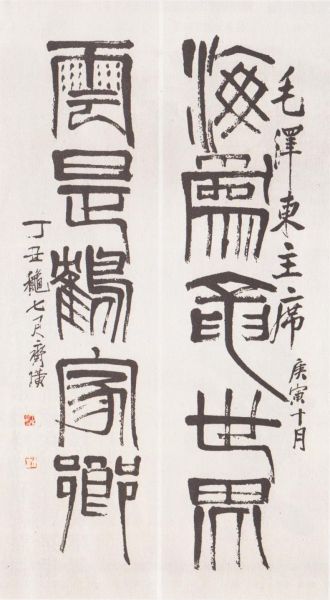 毛澤東主席 庚寅十月
海為龍世界
雲是鶴家鄉
丁丑穐七 齊璜